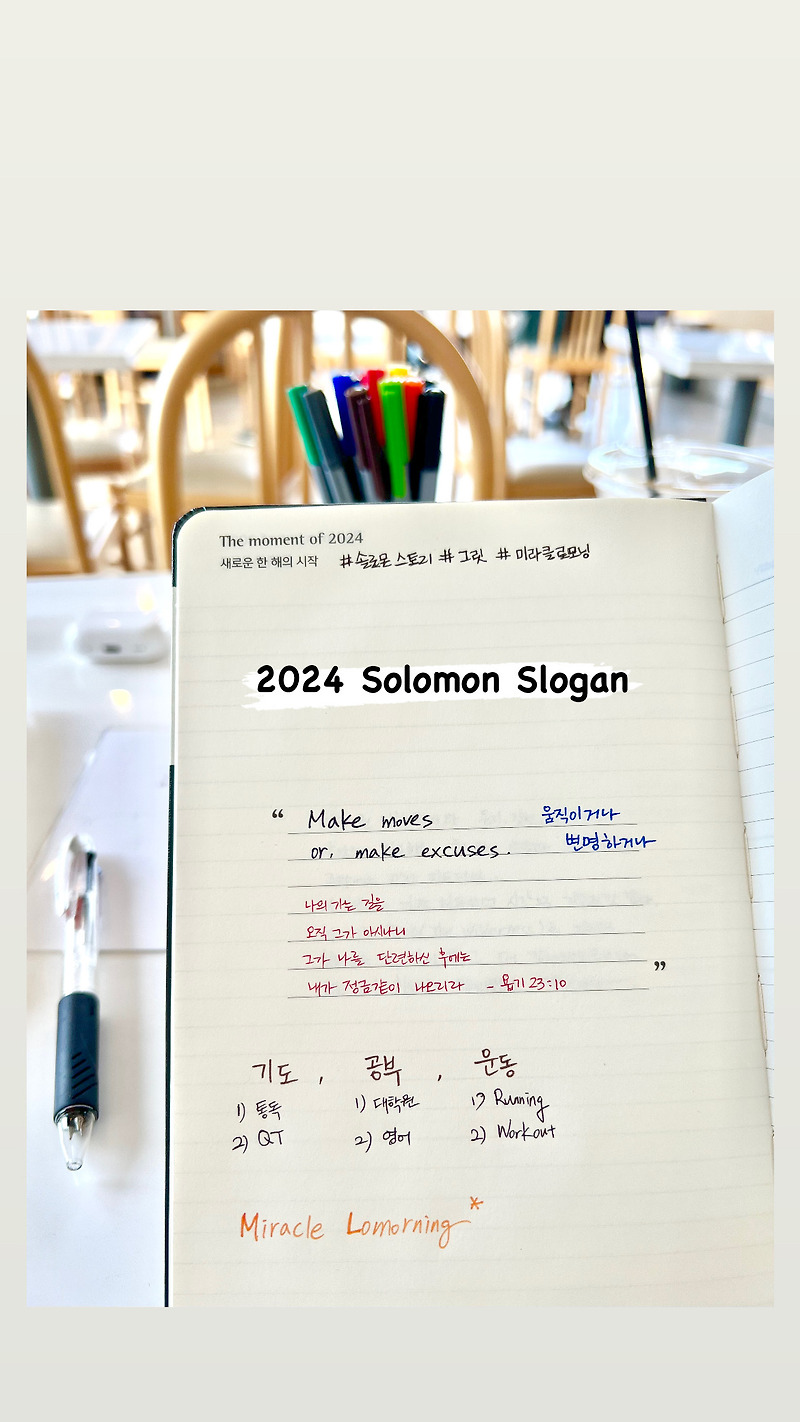 The moment of 2024
새로운 한 해의 시작 #솔로몬 스토리 #그릿 #미라클로모닝
2024 Solomon Slogan
“ Make moves 움직이거나
or, make excuses. 변명하거나
나의 가는 길을
오직 그가 아시나니
그가 나를 단련하신 후에는
내가 정금같이 나오리라 - 욥기 23:10 ”
기도, 공부, 운동
1) 통독 1) 대학원 1) Running
2) QT 2) 영어 2) Workout
Miracle Lomorning*